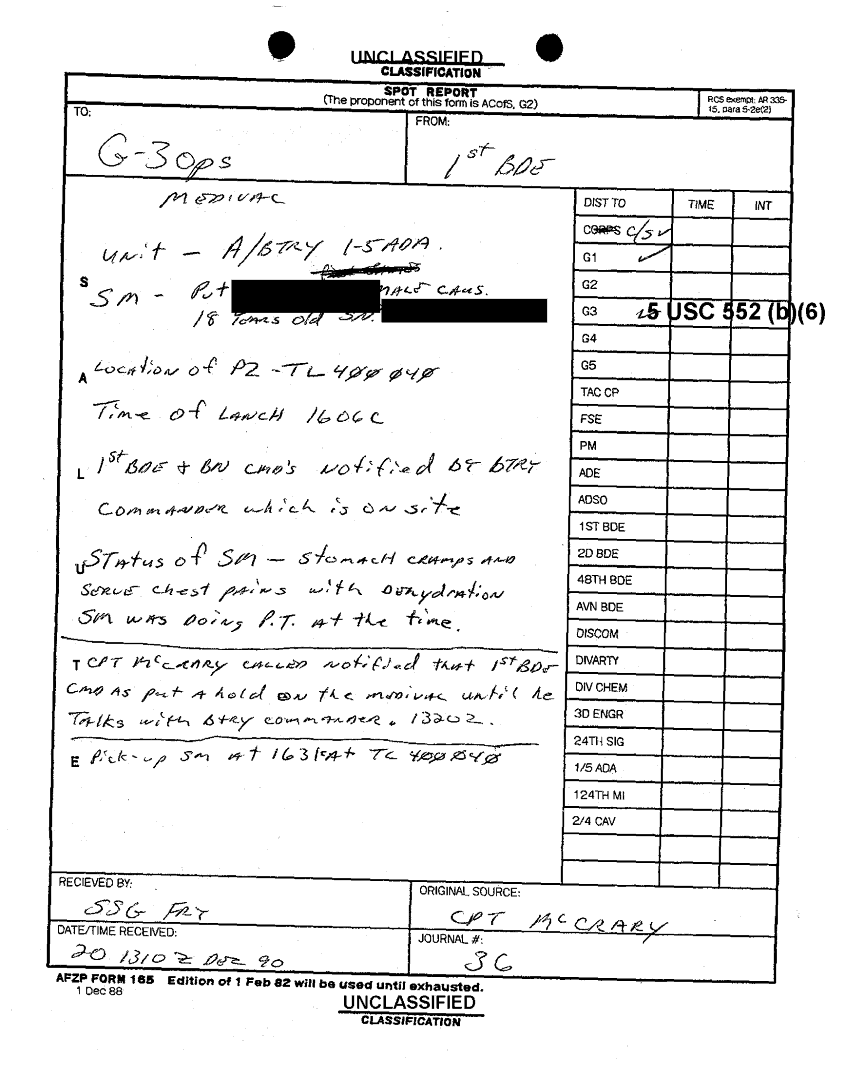 UNCLASSIFIED
CLASSIFICATION
SPOT REPORT
(The proponent of this form is ACofS, G2)
RCS exempt: AR 335-
15, para 5-2e(2)
TO:
G-3 ops
FROM:
1st BDE
MEDIVAC
Unit - A/BTRY 1-5 ADA.
S
SM - Put MALE CAUS.
18 Years old SN.
A
Location of PZ - TL 400 040
Time of LANCH 1606C
L
1st BDE + BN CMD's notified BY BTRY
Commander which is on site
U
Status of SM - Stomach cramps AND
SERVE chest pains with Dehydration
SM WAS Doing P.T. At the time.
T
CPT McCRARY CALLED notified that 1st BDE
CMD AS put A hold on the medivac until he
Talks with Btry commander. 1320Z.
E
Pick-up SM At 1631C At TL 400 040
DIST TO TIME INT
CORPS C/S ✓
G1 ✓
G2
G3
5 USC 552 (b)(6)
G4
G5
TAC CP
FSE
PM
ADE
ADSO
1ST BDE
2D BDE
48TH BDE
AVN BDE
DISCOM
DIVARTY
DIV CHEM
3D ENGR
24TH SIG
1/5 ADA
124TH MI
2/4 CAV
RECIEVED BY:
SSG FRY
ORIGINAL SOURCE:
CPT McCRARY
DATE/TIME RECEIVED:
20 1310 Z DEC 90
JOURNAL #:
36
AFZP FORM 165 Edition of 1 Feb 82 will be used until exhausted.
1 Dec 88
UNCLASSIFIED
CLASSIFICATION